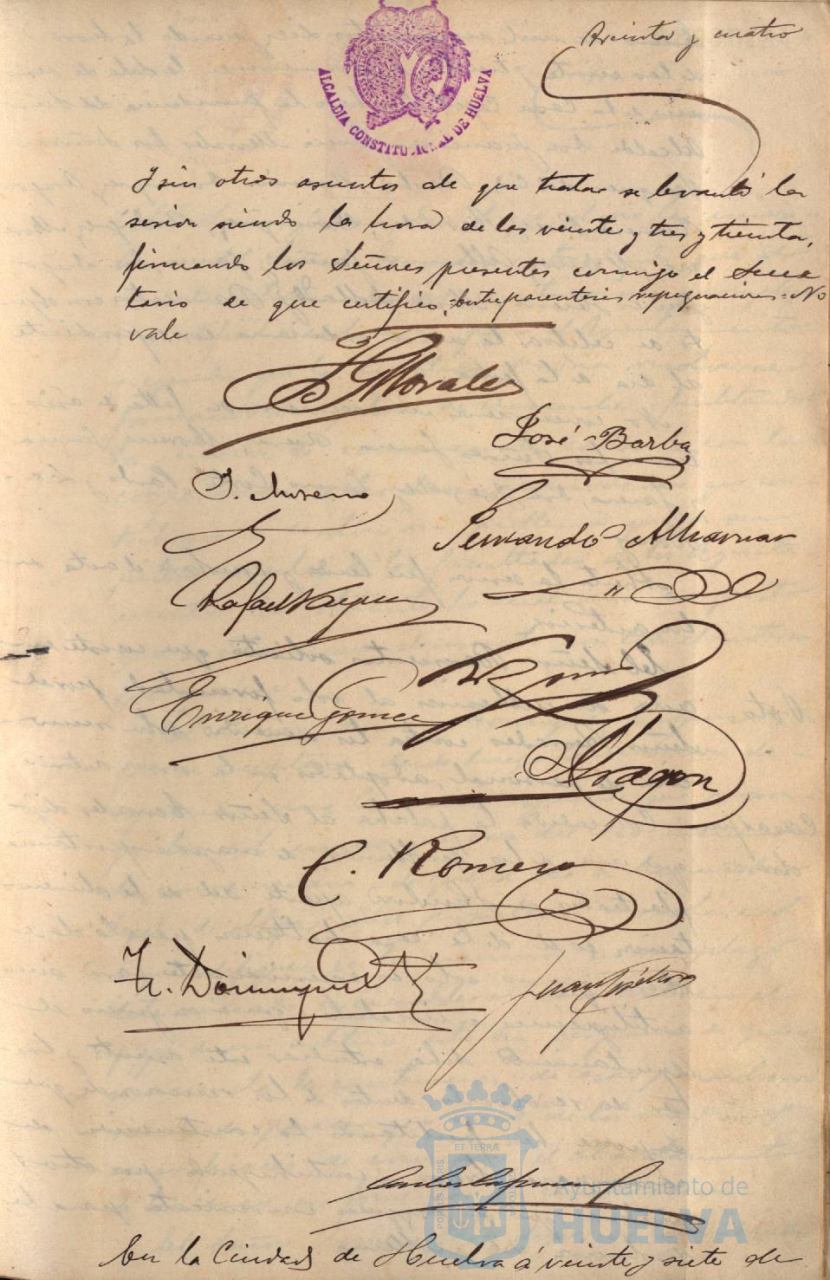 Treinta y cuatro
ALCALDIA CONSTITUCIONAL DE HUELVA
Y sin otros asuntos de que tratar se levantó la
sesion siendo la hora de las veinte y tres y treinta,
firmando los Señores presentes conmigo el Secre
tario de que certifico. Entreparentesis = = No
vale
Morales
José Barba
J. Moreno
Fernando
Rafael Vazquez
Enrique Gomez
Aragon
C. Romero
Dominguez
Juan
ET TERRÆ
Ayuntamiento de
HUELVA
En la Ciudad de Huelva á veinte y siete de